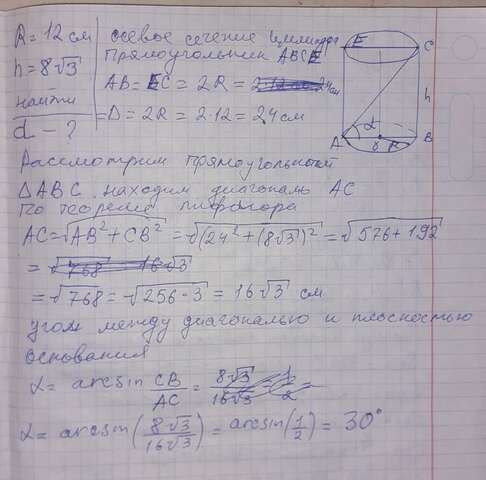 R = 12 см
h = 8√3
найти
d - ?
осевое сечение цилиндра
прямоугольник ABCE
AB = EC = 2R =
= D = 2R = 2·12 = 24 см
E C
h
α
A B
O R
Рассмотрим прямоугольный
△ABC. находим диагональ AC
по теореме пифагора
AC = √AB² + CB² = √(24² + (8√3)² = √576 + 192
= √768 = 16√3
= √768 = √256·3 = 16√3 см
угол между диагональю и плоскостью
основания
α = arcsin CB/AC = 8√3/16√3 = 1/2 =
α = arcsin(8√3/16√3) = arcsin(1/2) = 30°